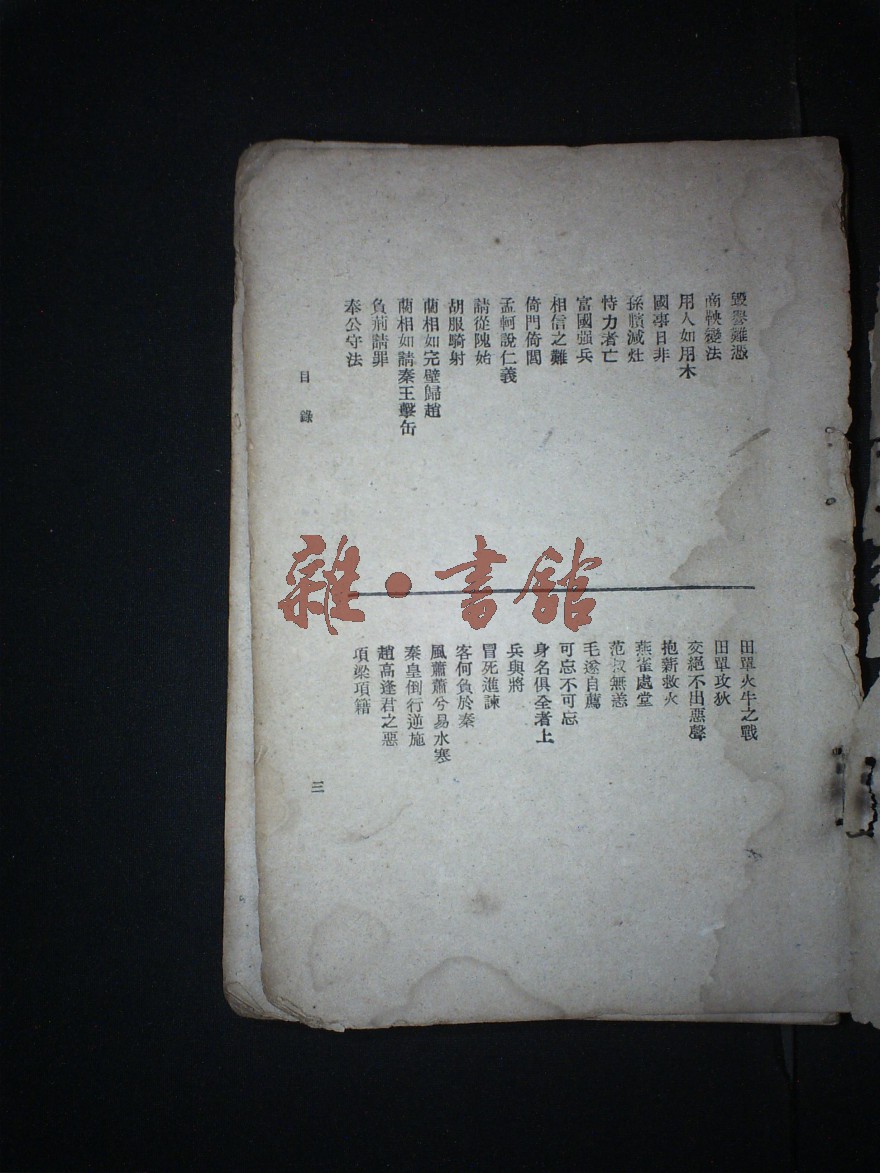 毀譽難憑
商鞅變法
用人如用木
國事日非
孫臏減灶
恃力者亡
富國强兵
相信之難
倚門倚閭
孟軻說仁義
請從隗始
胡服騎射
藺相如完璧歸趙
藺相如請秦王擊缶
負荊請罪
奉公守法
田單火牛之戰
田單攻狄
交絕不出惡聲
抱薪救火
燕雀處堂
范叔無恙
毛遂自薦
可忘不可忘
身名俱全者上
兵與將
冒死進諫
客何負於秦
風蕭蕭兮易水寒
秦皇倒行逆施
趙高逢君之惡
項梁項籍
目錄
三
雜·書館